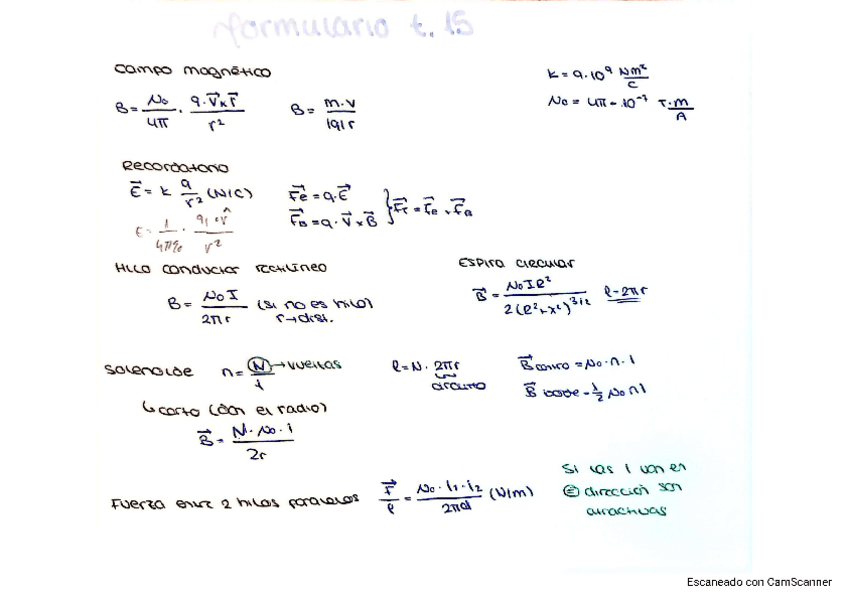 formulario t.15
campo magnético
B = μ₀/4π · q·v⃗×r⃗/r²   B = m·v/|q|r
k = 9·10⁹ Nm²/C
μ₀ = 4π·10⁻⁷ T·m/A
Recordatorio
E⃗ = k q/r² (N/C)   F⃗e = q·E⃗
F⃗B = q·v⃗×B⃗ } F⃗T = F⃗e + F⃗B
E = 1/4πε₀ · q₁·r̂/r²
Hilo conductor rectilíneo
B = μ₀I/2πr (si no es hilo)
r→dist.
ESPIRA circular
B⃗ = μ₀IR²/2(R²+x²)^3/2   l=2πr
solenoide   n = N/l →vueltas   l = N·2πr
circuito
B⃗ centro = μ₀·n·I
B⃗ borde = 1/2 μ₀nI
↳ corto (con el radio)
B⃗ = N·μ₀·i/2r
Fuerza entre 2 hilos paralelos   F⃗/l = μ₀·i₁·i₂/2πd (N/m)
Si las I van en
⊜ dirección son
atractivas
Escaneado con CamScanner